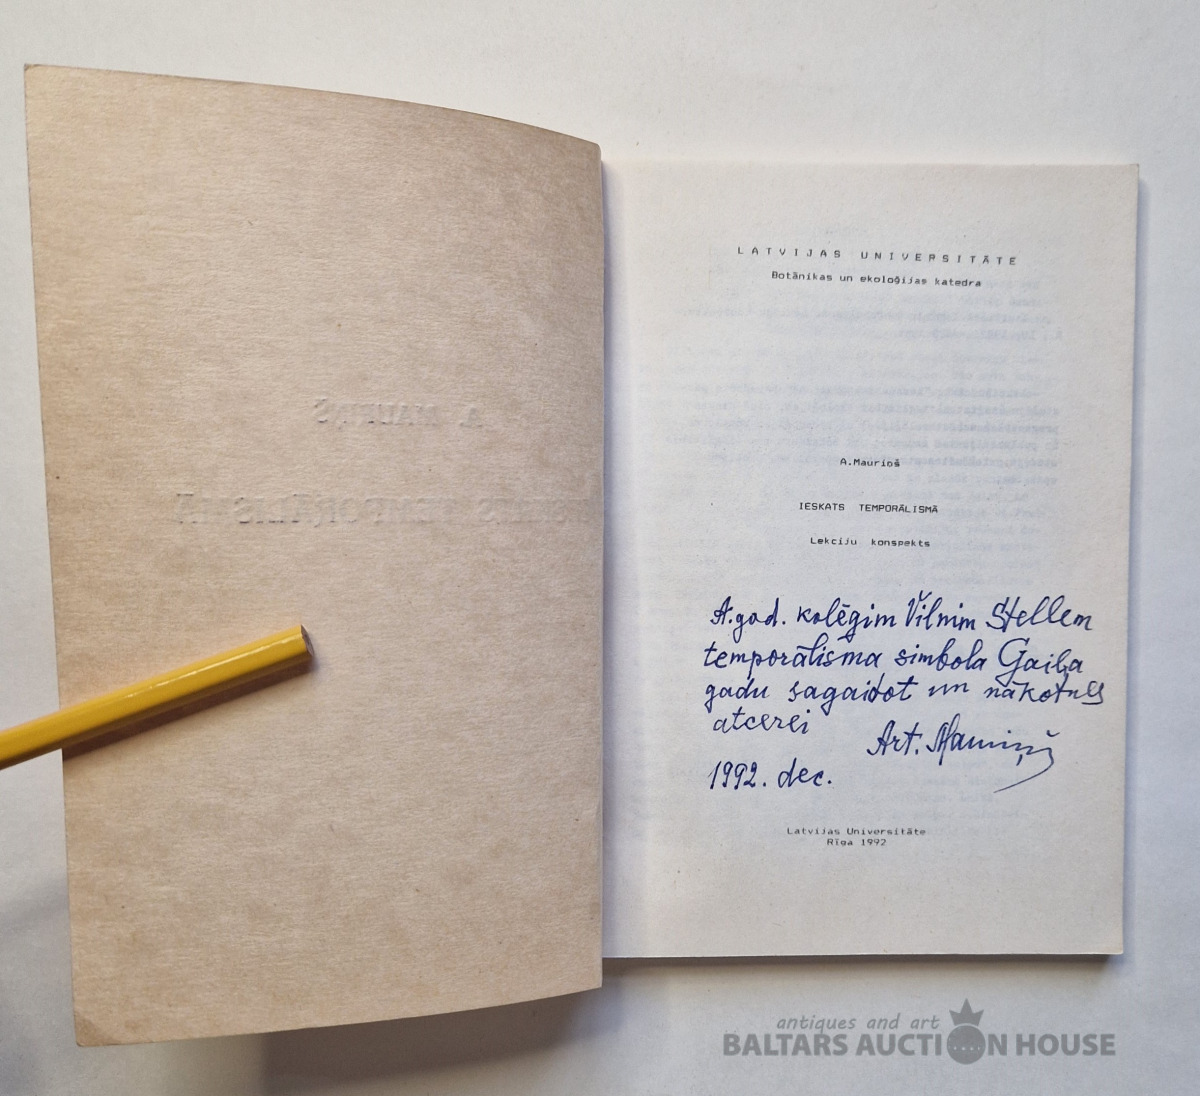 A. MAURIŅŠ
TEMPORĀLISMĀ
LATVIJAS UNIVERSITĀTE
Botānikas un ekoloģijas katedra
A.Mauriņš
IESKATS TEMPORĀLISMĀ
Lekciju konspekts
A.god. kolēģim Vilnim Stellem
temporālisma simbola Gaiļa
gadu sagaidot un nākotnes
atcerei
Art. Mauriņš
1992. dec.
Latvijas Universitāte
Rīga 1992
antiques and art
BALTARS AUCTION HOUSE